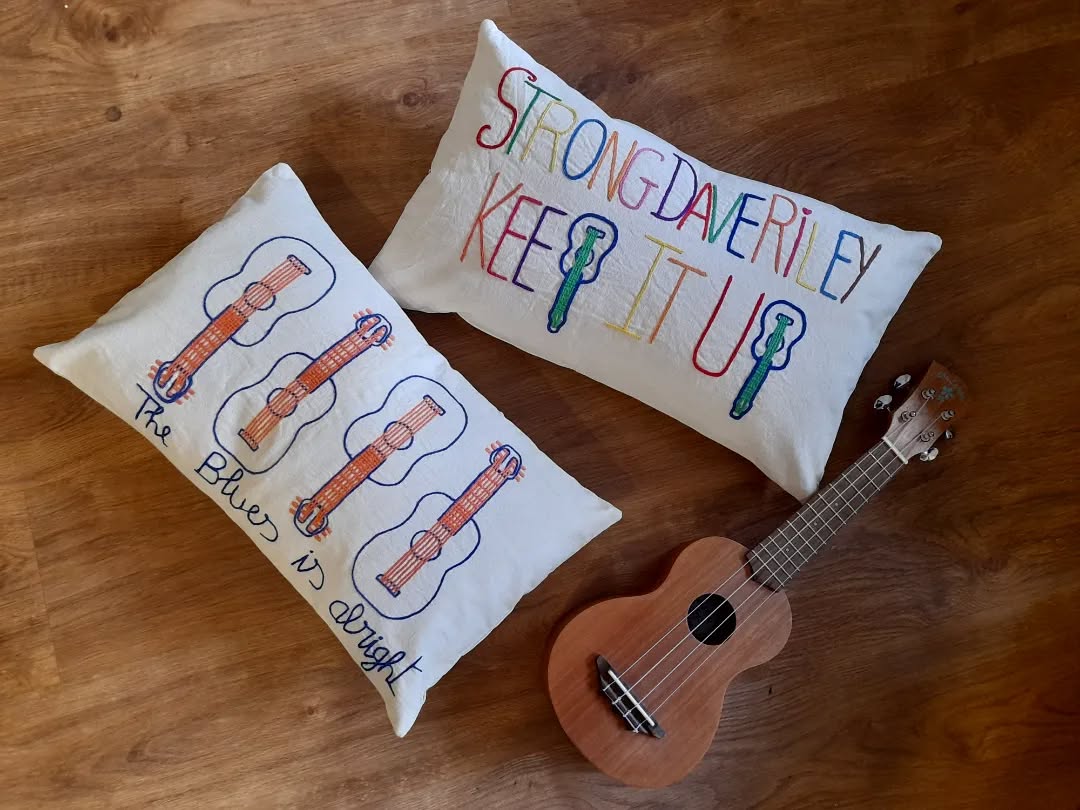 STRONG DAVE RiLEY
KEEP IT UP
The Blues is alright